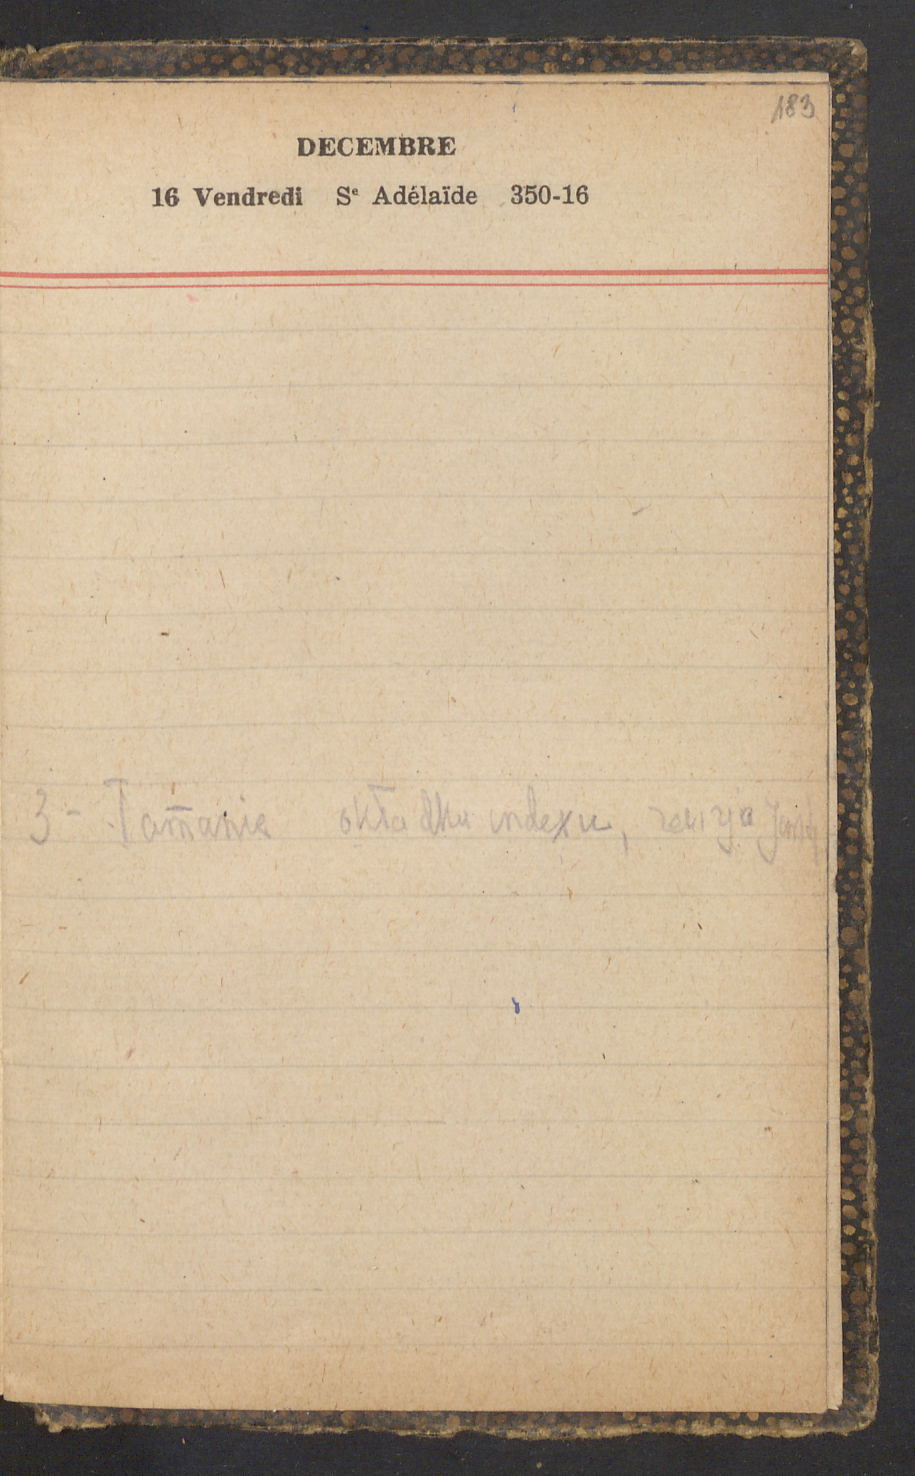 183
DECEMBRE
16 Vendredi Sᵉ Adélaïde 350-16
3 - Łamanie okładka indexu,